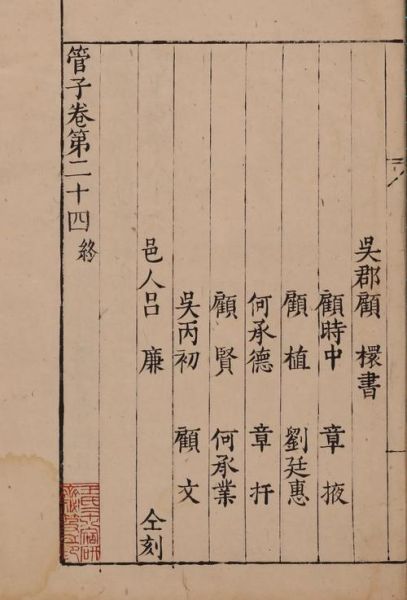 吳郡顧檈書
顧時中 章掖
顧植 劉廷惠
何承德 章扞
顧賢 何承業
吳丙初 顧文
邑人吕廉 仝刻
管子卷第二十四 終